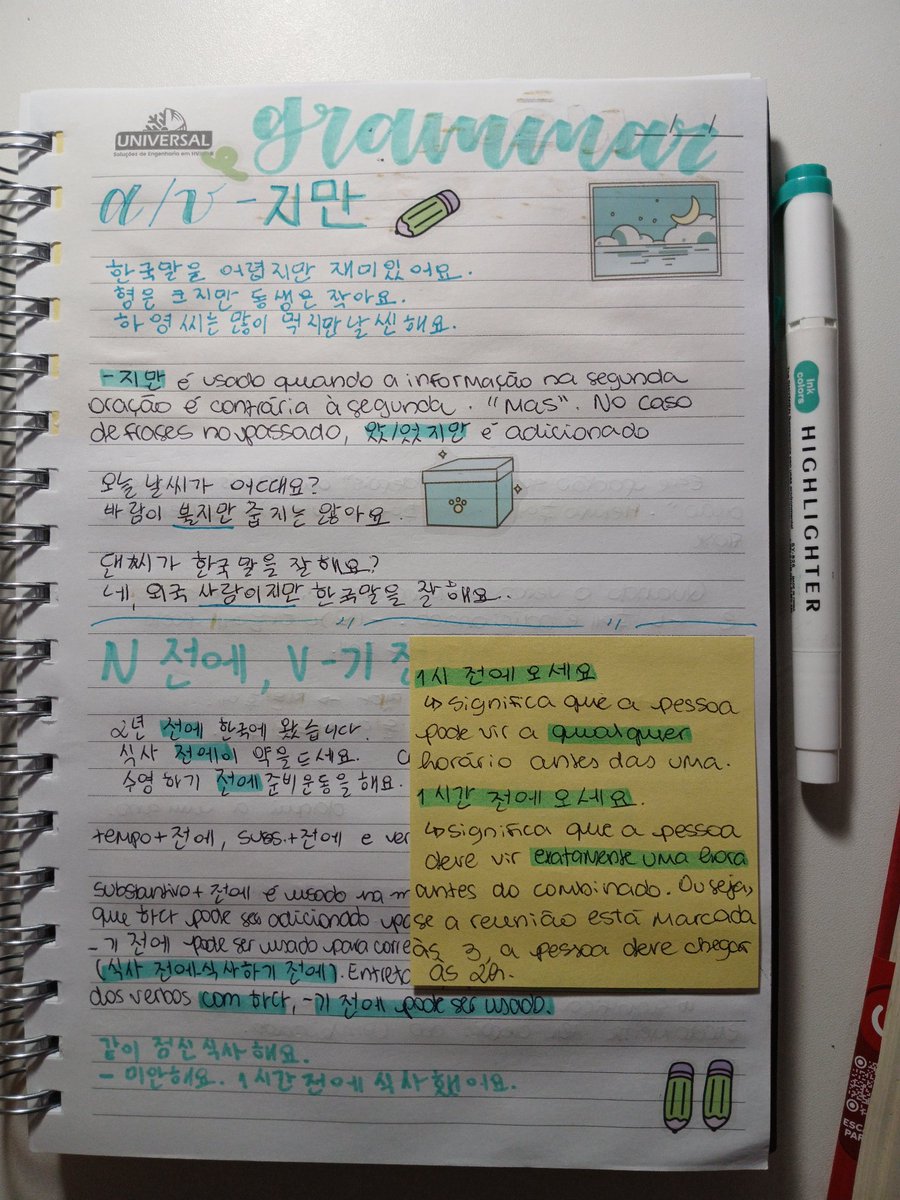 UNIVERSAL
Soluções de Engenharia em
grammar
a/v -지만
한국말을 어렵지만 재미있어요.
형은 크지만 동생은 작아요.
하영씨는 많이 먹지만 날씬해요.
-지만 é usado quando a informação na segunda
oração é contrária à segunda. "Mas". No caso
de frases no passado, 았/었지만 é adicionado
오늘 날씨가 어때요?
바람이 불지만 춥지는 않아요.
씨가 한국말을 잘 해요?
네, 외국 사람이지만 한국말을 잘 해요.
N 전에, V-기 전
2년 전에 한국에 왔습니다.
식사 전에이 약을 드세요.
수영하기 전에 준비운동을 해요.
tempo+전에, subs.+전에 e ver
substantivo+전에 é usado na m
que 하다 pode ser adicionado
-기 전에 pode ser usado para corre
(식사 전에식사하기 전에). Entreto
dos verbos com 하다, -기 전에 pode ser usado.
같이 점신식사해요.
- 미안해요. 1시간 전에 식사했어요.
1시 전에 오세요
↳ significa que a pessoa
pode vir a qualquer
horário antes das uma.
1시간 전에 오세요.
↳ significa que a pessoa
deve vir exatamente uma hora
antes do combinado. Ou seja,
se a reunião está marcada
às 3, a pessoa deve chegar
às 2h.
ink colors
HIGHLIGHTER